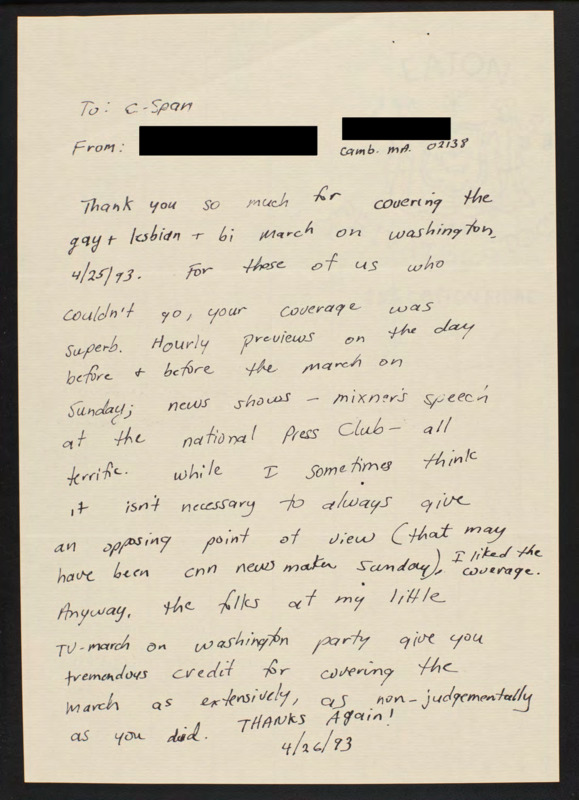 To: C-Span
From:
Camb. MA. 02138
Thank you so much for covering the
gay + lesbian + bi march on Washington,
4/25/93. For those of us who
couldn't go, your coverage was
superb. Hourly previews on the day
before + before the march on
Sunday; news shows – mixner's speech
at the national Press Club – all
terrific. While I sometimes think
it isn't necessary to always give
an opposing point of view (that may
have been cnn news maker Sunday), I liked the
coverage.
Anyway, the folks at my little
TV-march on Washington party give you
tremendous credit for covering the
march as extensively, as non-judgementally
as you did. THANKS Again!
4/26/93